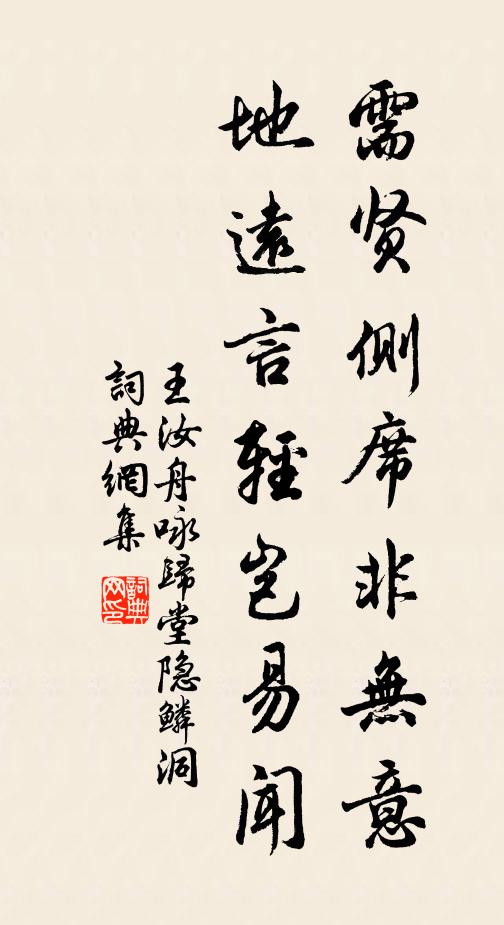 需贤侧席非無意
地遠言輕岂易聞
王汝舟咏歸堂隐鳞洞
詞典網集
詞典網印